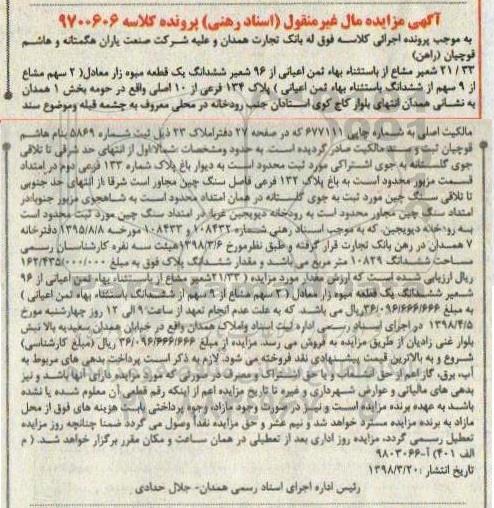 آگهی مزایده مال غیرمنقول (اسناد رهنی) پرونده کلاسه ۹۷۰۰۶۰۶
به موجب پرونده اجرائی کلاسه فوق له بانک تجارت همدان و علیه شرکت صنعت یاران هگمتانه و هاشم
قوچیان (راهن)
۲۱/۳۳ شعیر مشاع از باستثناء بهاء ثمن اعیانی از ۹۶ شعیر ششدانگ یک قطعه میوه زار معادل( ۲ سهم مشاع
از ۹ سهم از ششدانگ باستثناء بهاء ثمن اعیانی ) پلاک ۱۳۴ فرعی از ۱۰ اصلی واقع در حومه بخش ۱ همدان
به نشانی همدان انتهای بلوار کاج کوی استادان جنب رودخانه در محلی معروف به چشمه قبله وموضوع سند
مالکیت اصلی به شماره چاپی ۶۷۷۱۱۱ که در صفحه ۲۷ دفتراملاک ۲۳ ذیل ثبت شماره ۵۸۶۹ بنام هاشم
قوچیان ثبت و سند مالکیت صادر گردیده است. به حدود ومشخصات شمالااول از انتهای حد شرقی تا تلاقی
جوی گلستانه به جوی اشتراکی مورد ثبت محدود است به دیوار باغ پلاک شماره ۱۳۳ فرعی دوم در امتداد
قسمت مزبور محدود است به باغ پلاک ۱۳۲ فرعی فاصل سنگ چین مجاور است شرقا از انتهای حد جنوبی
تا تلاقی سنگ چین مورد ثبت به جوی گلستانه در همان امتداد محدود است به شاهجوی مزبور جنوبادر
امتداد سنگ چین مجاور محدود است به رودخانه دیویجین غربا در امتداد سنگ چین مورد ثبت محدود است
به رودخانه دیویجین. که به موجب اسناد رهنی شماره ۱۰۸۴۳۲ و ۱۰۸۴۳۳ مورخه ۱۳۹۵/۸/۸ دفترخانه
۷ همدان در رهن بانک تجارت قرار گرفته و طبق نظرمورخ ۱۳۹۸/۳/۶ هیئت سه نفره کارشناسان رسمی
مساحت ششدانگ ۱۰۸۲۹ متر مربع می باشد و مقدار ششدانگ پلاک فوق به مبلغ ۱۶۲/۴۳۵/۰۰۰/۰۰۰
ریال ارزیابی شده است که ارزش مقدار مورد مزایده ( ۲۱/۳۳شعیر مشاع از باستثناء بهاء ثمن اعیانی از ۹۶
شعیر ششدانگ یک قطعه میوه زار معادل ( ۲ سهم مشاع از ۹ سهم از ششدانگ باستثناء بهاء ثمن اعیانی )
به مبلغ ۳۶/۰۹۶/۶۶۶/۶۶۶ریال می باشد. که به علت عدم انجام تعهد از ساعت ۹ الی ۱۲ روز چهارشنبه مورخ
۱۳۹۸/۴/۵ در اجرای اسناد رسمی اداره ثبت اسناد واملاک همدان واقع در خیابان همدان سعیدیه بالا نبش
بلوار غنی زادیان از طریق مزایده به فروش می رسد. مزایده از مبلغ ۳۶/۰۹۶/۶۶۶/۶۶۶ ریال (مبلغ کارشناسی)
شروع و به بالاترین قیمت پیشنهادی نقد فروخته می شود. لازم به ذکر است پرداخت بدهی های مربوط به
آب، برق، گاز اعم از حق انشعاب و یا حق اشتراک و مصرف در صورتی که مورد مزایده دارای آنها باشد و نیز
بدهی های مالیاتی و عوارض شهرداری و غیره تا تاریخ مزایده اعم از اینکه رقم قطعی آن معلوم شده یا نشده
باشد به عهده برنده مزایده است و نیز در صورت وجود مازاد، وجوه پرداختی بابت هزینه های فوق از محل
مازاد به برنده مزایده مسترد خواهد شد و نیم عشر و حق مزایده نقداً وصول می گردد ضمنا چنانچه روز مزایده
تعطیل رسمی گردد، مزایده روز اداری بعد از تعطیلی در همان ساعت و مکان مقرر برگزار خواهد شد. ( م
الف ۴۰۱) آ-۹۸۰۳۰۶۶
تاریخ انتشار :۱۳۹۸/۳/۲۰
رئیس اداره اجرای اسناد رسمی همدان- جلال حدادی